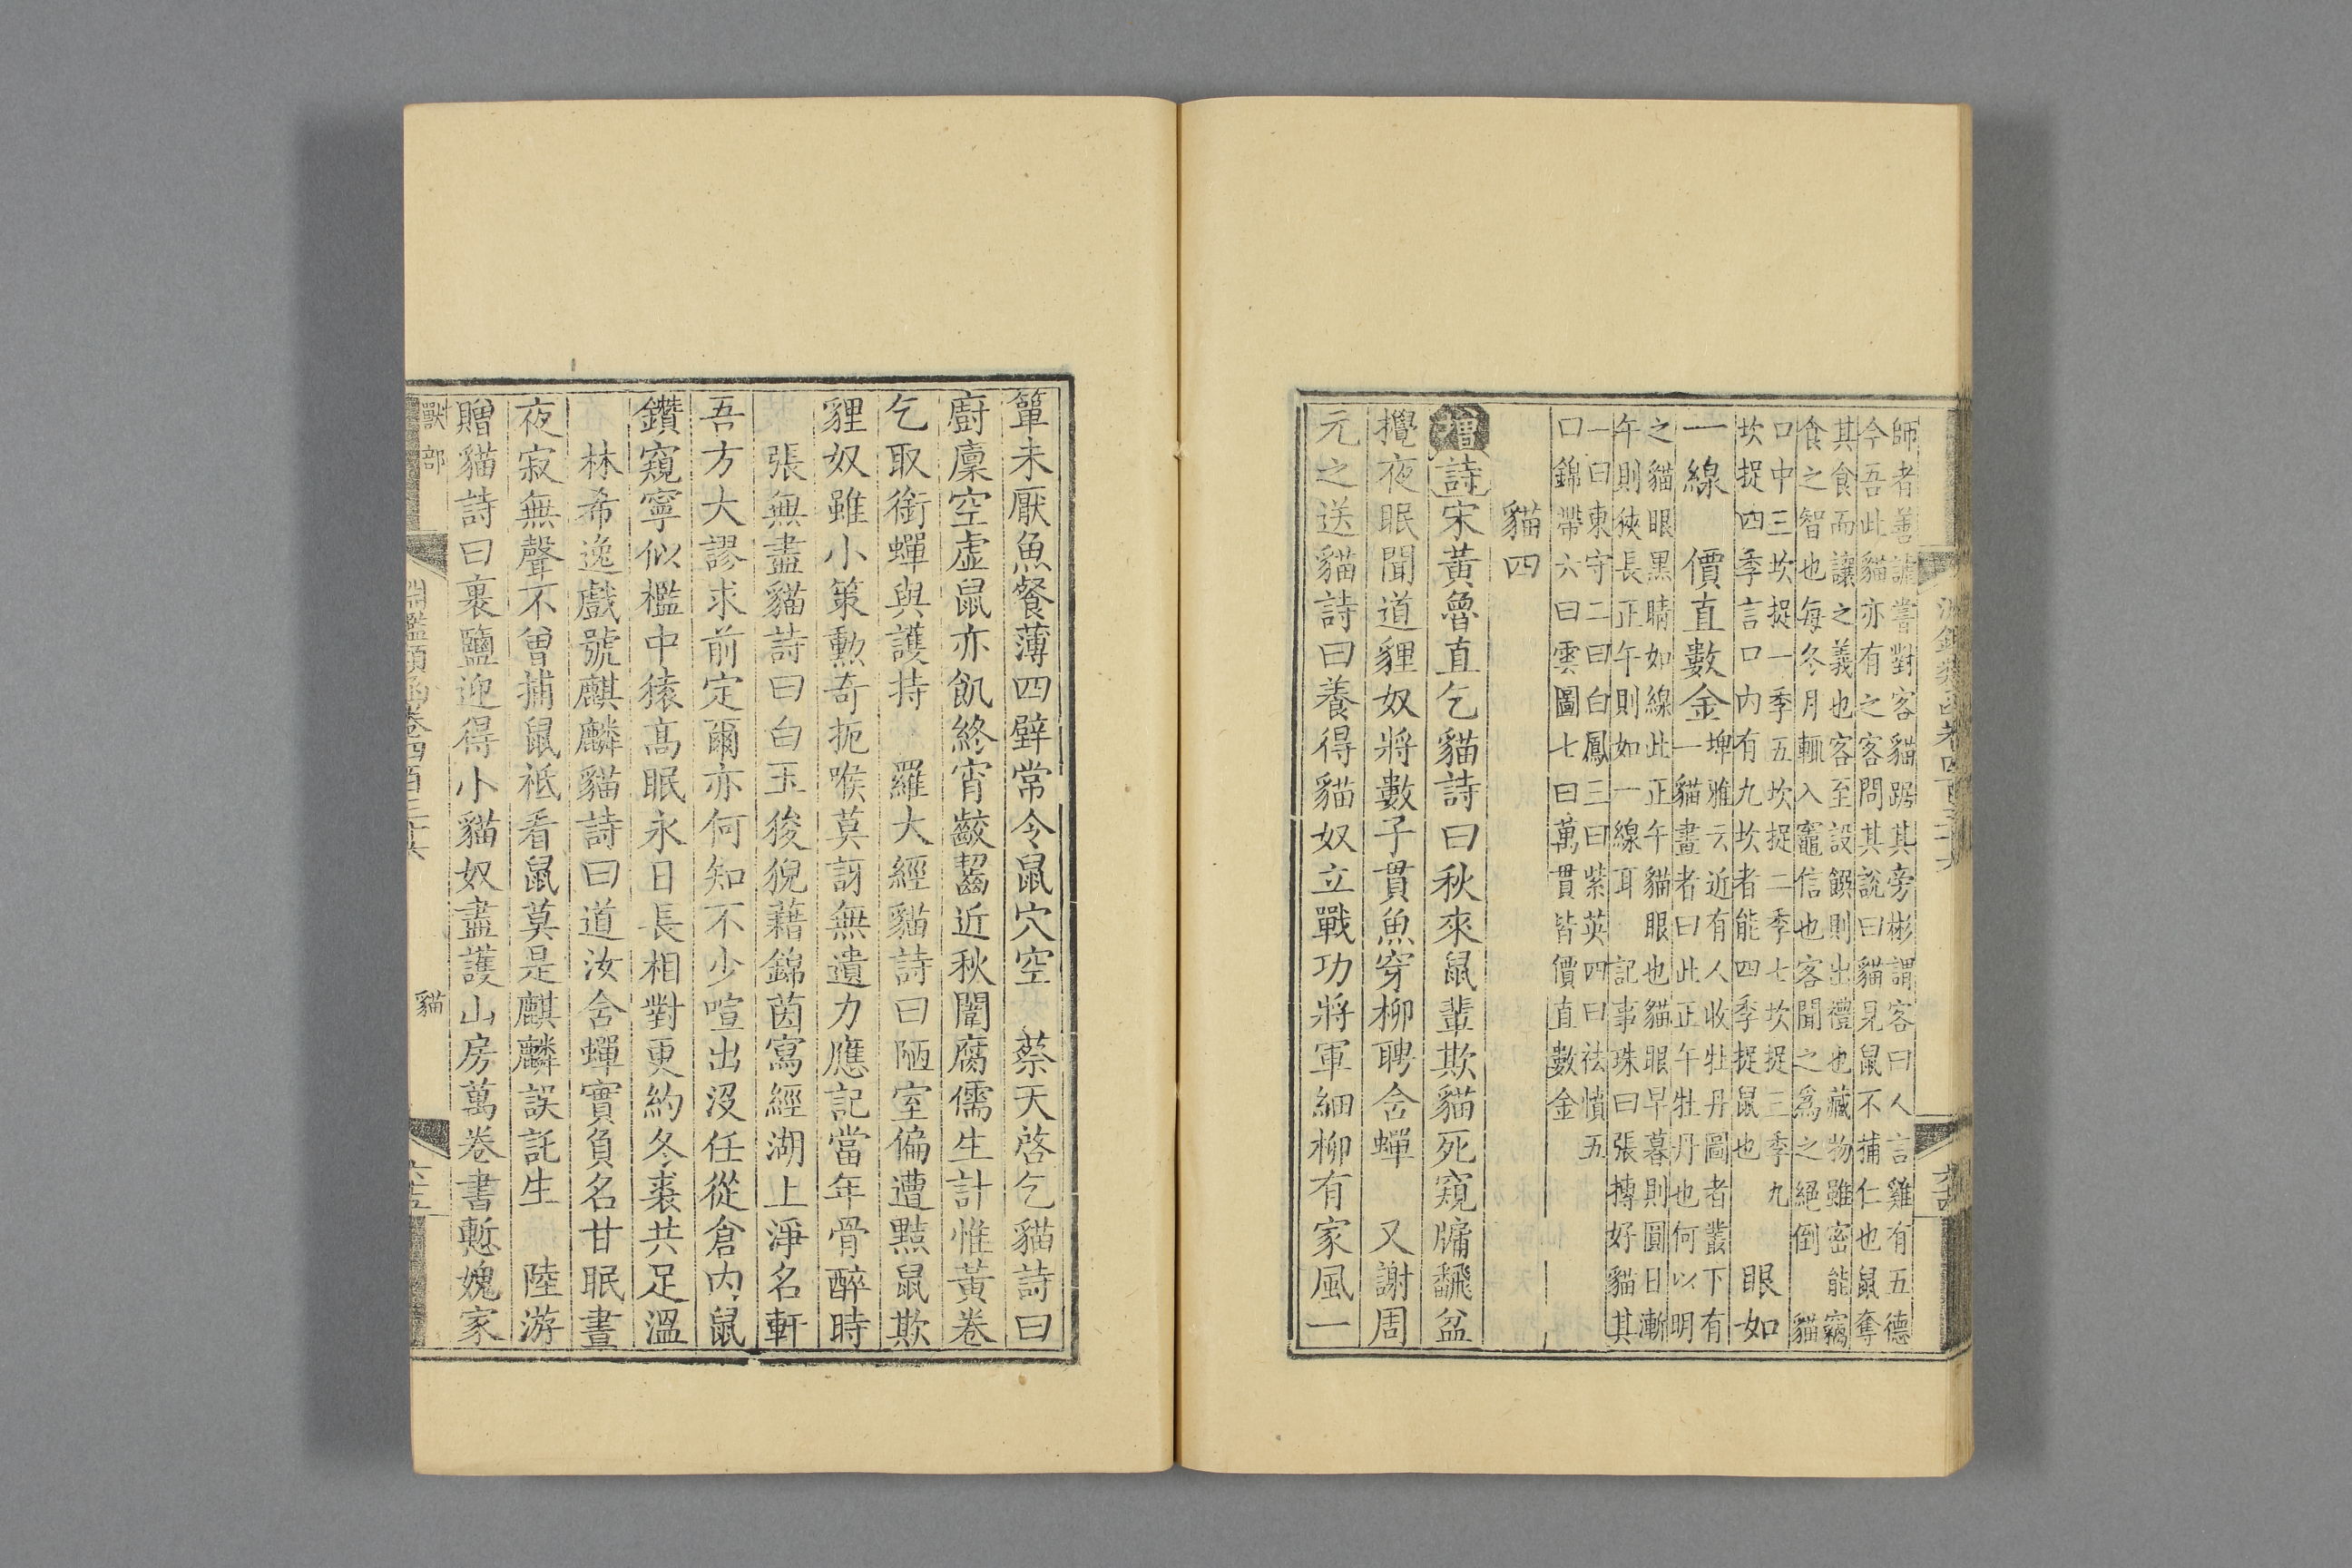 師者善謔嘗對客貓踞其旁彬謂客曰人言雞有五德
今吾此貓亦有之客問其說曰貓見鼠不捕仁也鼠奪
其食而讓之義也客至設饌則出禮也藏物雖密能竊
食之智也每冬月輒入竈信也客聞之爲之絕倒　貓
口中三坎捉一季五坎捉二季七坎捉三季九
坎捉四季言口内有九坎者能四季捉鼠也
眼如
一線　價直數金
埤雅云近有人收牡丹圖者叢下有
一貓畫者曰此正午牡丹也何以明
之貓眼黑睛如線此正午貓眼也貓眼早暮則圓日漸
午則狹長正午則如一線耳　記事珠曰張摶好貓其
一曰東守二曰白鳳三曰紫英四曰祛憤五
曰錦帶六曰雲圖七曰萬貫皆價直數金
貓四
增詩宋黃魯直乞貓詩曰秋來鼠輩欺貓死窺牖翻盆
攪夜眠聞道狸奴將數子貫魚穿柳聘含蟬　又謝周
元之送貓詩曰養得貓奴立戰功將軍細柳有家風一
簞未厭魚餐薄四壁常令鼠穴空　蔡天啓乞貓詩曰
廚廩空虛鼠亦飢終宵齩齧近秋闈腐儒生計惟黃卷
乞取銜蟬與護持　羅大經貓詩曰陋室偏遭黠鼠欺
貍奴雖小策勳奇扼喉莫訝無遺力應記當年骨醉時
張無盡貓詩曰白玉狻猊藉錦茵寫經湖上淨名軒
吾方大謬求前定爾亦何知不少喧出没任從倉内鼠
鑽窺寧似檻中猿高眠永日長相對更約冬裘共足溫
林希逸戲號麒麟貓詩曰道汝含蟬實負名甘眠晝
夜寂無聲不曾捕鼠祗看鼠莫是麒麟誤託生　陸游
贈貓詩曰裹鹽迎得小貓奴盡護山房萬卷書慙媿家
獸部
淵鑑類函卷四百三十六
貓